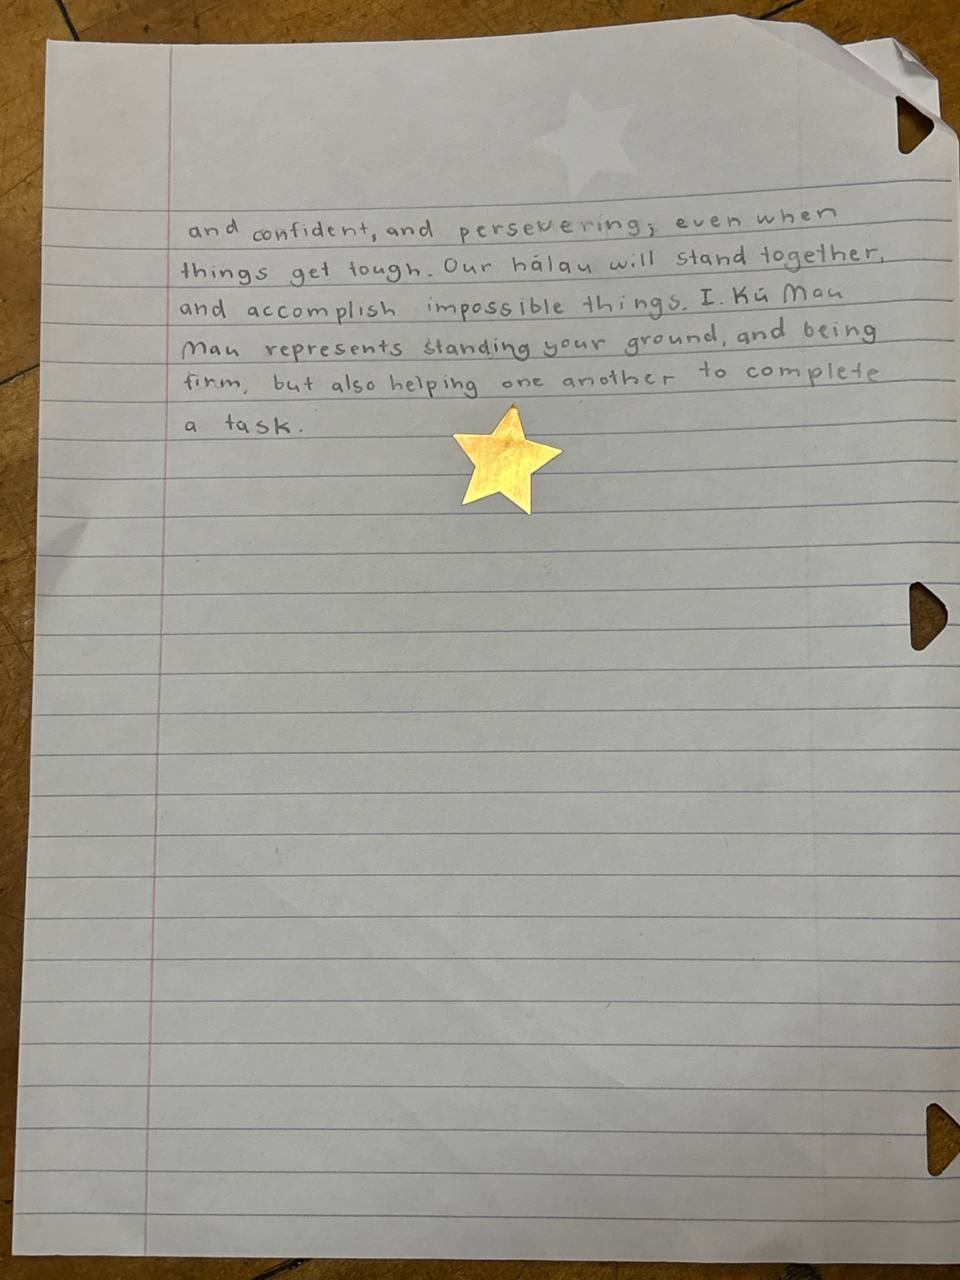 and confident, and persevering, even when
things get tough. Our hālau will stand together,
and accomplish impossible things. I. Kū Mau
Mau represents standing your ground, and being
firm, but also helping one another to complete
a task.